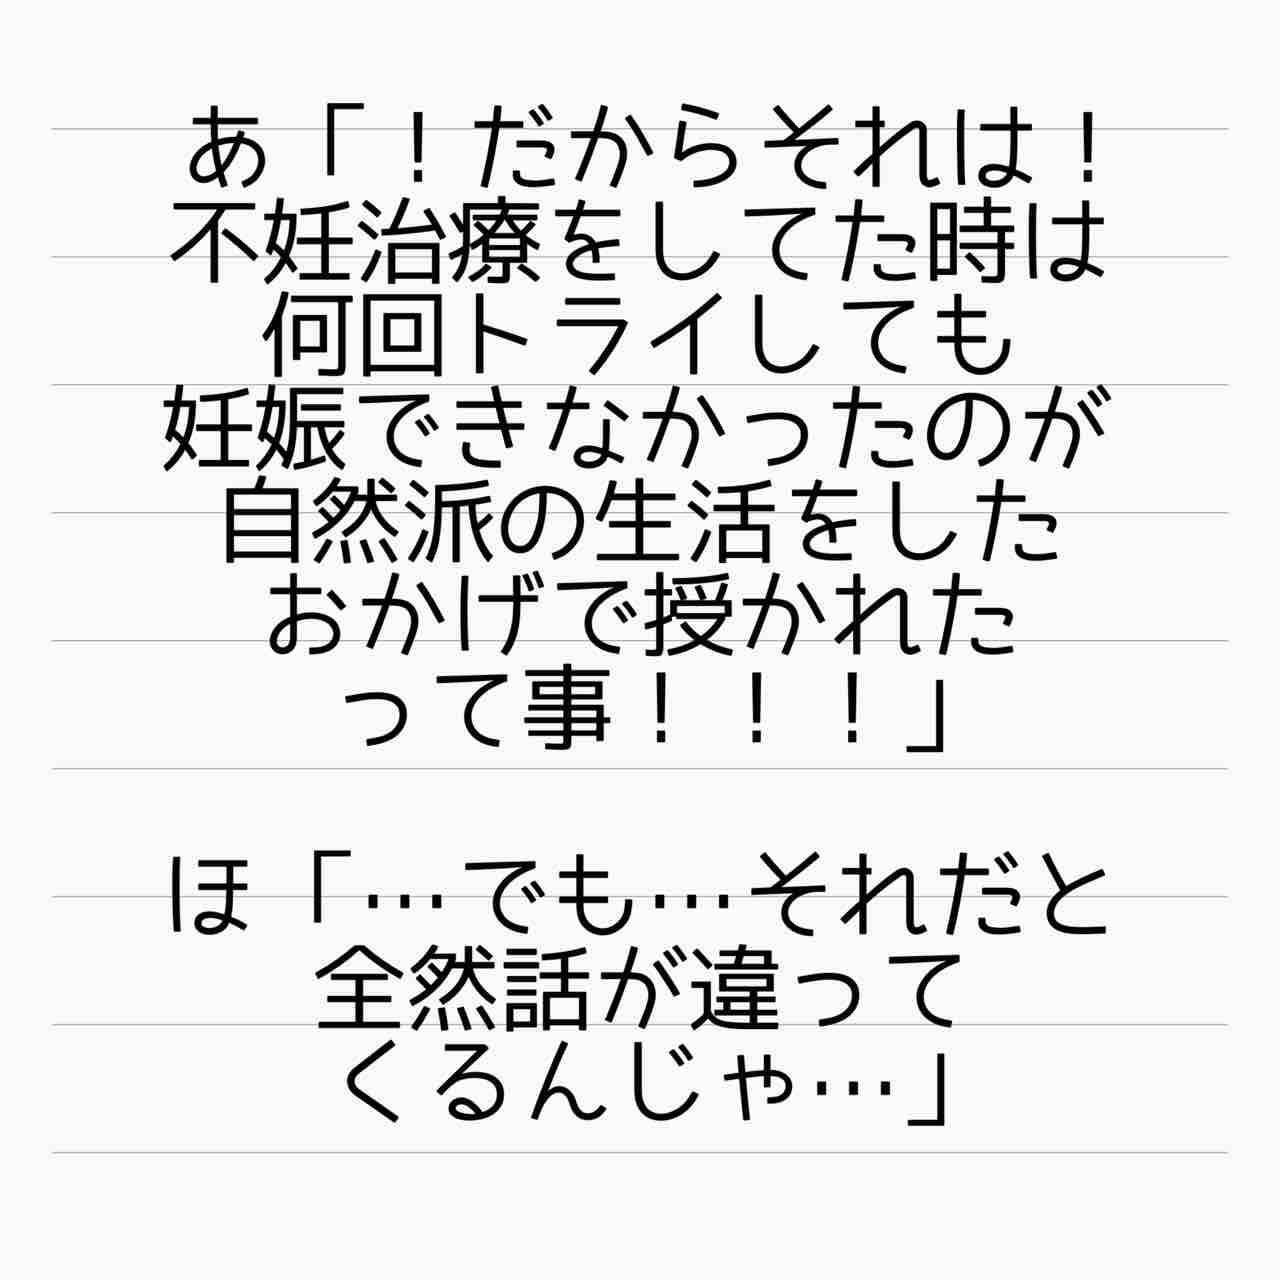 あ「！だからそれは！
不妊治療をしてた時は
何回トライしても
妊娠できなかったのが
自然派の生活をした
おかげで授かれた
って事！！！」
ほ「…でも…それだと
全然話が違って
くるんじゃ…」